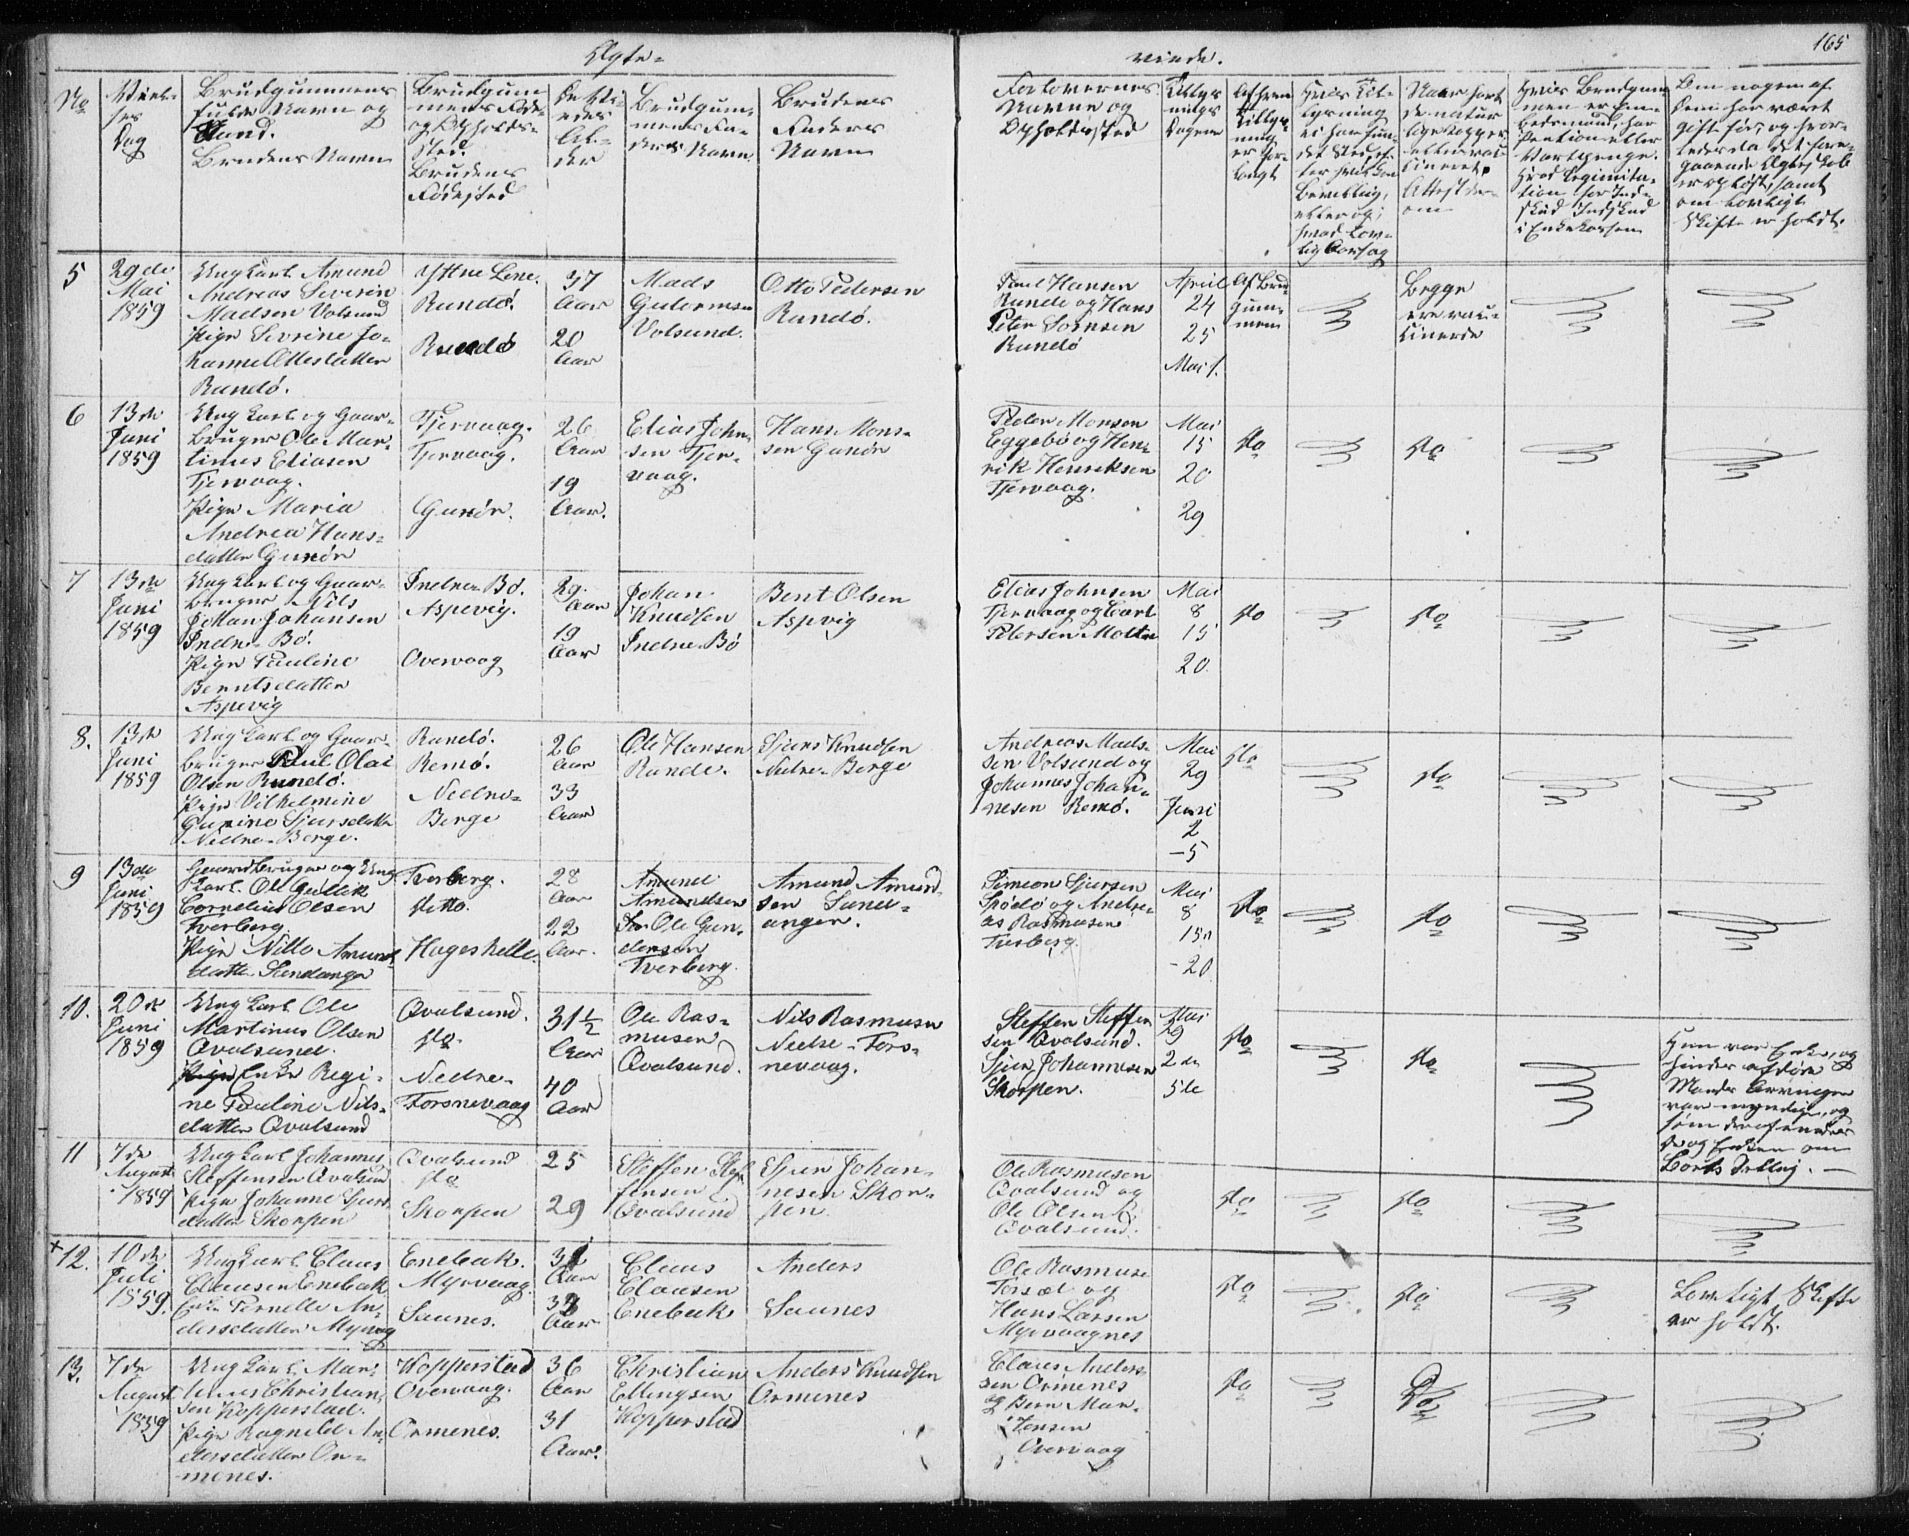 Ægte-
viede.
165
No
Viel-
ses
Dag
Brudgummens
fulde Navn og
Stand.
Brudens Navn
Brudgum-
mens Føde
og Opholds-
sted.
Brudens
Fødested
De Vi-
edes
Al-
der
Brudgum-
mens Fa-
ders Navn
Brudens
Faders
Navn
Forlovernes
Navne og
Opholdssted
Tillys-
nings
Dagene
Af hvem
Tillys-
ning
er for-
langt
Naar havt
de natur-
lige Kopper
eller vac-
cineret.
Attest der-
om
Om nogen af
dem har været
gift før, og hvor-
ledes da det fore-
gaaende Ægteskab
er opløst, samt
om lovligt
Skifte er holdt.
5
29de
Mai
1859
Ung Karl Amund
Andreas Severin
Madsen Volsund
Pige Sevrine Jo-
hanne Ottesdatter
Rundö.
Rundö.
Rundö
37
Aar
20
Aar
Mads
Gutormsen
Volsund.
Otto Pedersen
Rundö.
Paul Hansen
Runde og Hans
Peter Sörnsen
Rundö
April
24
25
Mai 1.
Af Brud-
gum-
men
Begge
ere vac-
cinerede
6
13de
Juni
1859
Ung Karl og Gaar-
bruger Ole Mar-
tinus Eliasen
Tjervaag.
Pige Maria
Andrea Hans-
datter Gurön
Tjervaag.
Tjervaag.
Gurön.
26
Aar
19
Aar.
Elias John-
sen Tjer-
vaag.
Hans Mons-
sen Gurön
Peder Monsen
Eggebö og Hen-
rik Henriksen
Tjervaag.
Mai
15
20
29
do
do
7
13de
Juni
1859
Ung Karl og Gaar-
bruger Nils
Johan Johansen
Indre-Bö.
Pige Pauline
Berntsdatter
Aspevig
Indre Bö.
Aspevig.
Overvaag
29.
Aar
19
Aar
Johan
Knudsen
Indre-Bö
Bent Olsen
Aspvig
Elias Johnsen
Tjervaag og Carl
Petersen Moltu
Mai
8
15
20.
do
do
8.
13de
Juni
1859
Ung Karl og Gaar-
bruger Paul Olai
Olsen Rundö.
Pige Vilhelmine
Gurine Sjursdatter
Nedre-Berge.
Rundö.
Remö.
Nedre-
Berge
26
Aar
33
Aar
Ole Hansen
Runde.
Sjurs Knudsen
Nedre-Berge
Andreas Mads-
sen Volsund og
Johannes Johan-
nesen Remö.
Mai
29
Juni
2
-5
do
do
9
13de
Juni
1859
Gaardbruger og Ung
Karl. Ole Gullik
Cornelius Olsen
Tverberg
Pige Nille Amunds
datter Sundanger
Tverberg.
ditto.
Hageshelle.
28
Aar
22
Aar.
Amund
Amundsen
Ole Gun-
dersen
Tverberg.
Amund Amund-
sen Sund-
anger.
Simeon Sjursen
Sködö og Andre-
as Rasmusen
Tverberg.
Mai
8
15
- 20
do
do
10.
20de
Juni
1859
Ung Karl Ole
Martinus Olsen
Qvalsund.
Enke Regi-
ne Pauline Nils-
datter Qvalsund
Qvalsund.
do.
Nedre-
Torsnevaag
31½
Aar
40
Aar
Ole Ras-
musen
Qvalsund.
Nils Rasmusen
Nedre-Tors-
nevaag.
Steffen Steffen-
sen Qvalsund.
Sjur Johannesen
Skorpen.
Mai
29
2de
5te
do
do
Hun var Enke, og
hendes afdöde
Mands Arvinger
vare myndige, og
11
7de
August
1859
Ung Karl Johannes
Steffensen Qvalsund
Pige Johanne Sjurs
datter Skorpen
Qvalsund
do
Skorpen
25
29
Steffen Stef-
fensen
Qvalsund
Sjur Johan-
nesen Skor-
pen.
Ole Rasmusen
Qvalsund og
Ole Olsen
Qvalsund.
do
do
12.
10de
Juli
1859.
Ung Karl Claus
Clausen Enebak
Enke Pernelle An-
dersdatter Myrvaag
Enebak.
Myrvaag
Saunes.
Aar
Aar
Claus
Clausen
Enebak
Anders
Saunes
Ole Rasmusen
Torsæt og
Hans Larsen
Myrvaagnes
do
do
Lovligt Skifte
er holdt.
13.
7de
August
1859
Ung Karl Mar-
tinus Christian-
sen Kopperstad.
Pige Ragnild An-
dersdatter Or-
menes.
Kopperstad
Overvaag.
Ormenes.
36
Aar
31
Aar.
Christian
Ellingsen
Kopperstad
Anders Knudsen
Ormenes
Claus Anders-
sen Ormenes
og Bern Mar-
Jensen
Overvaag
do
Do